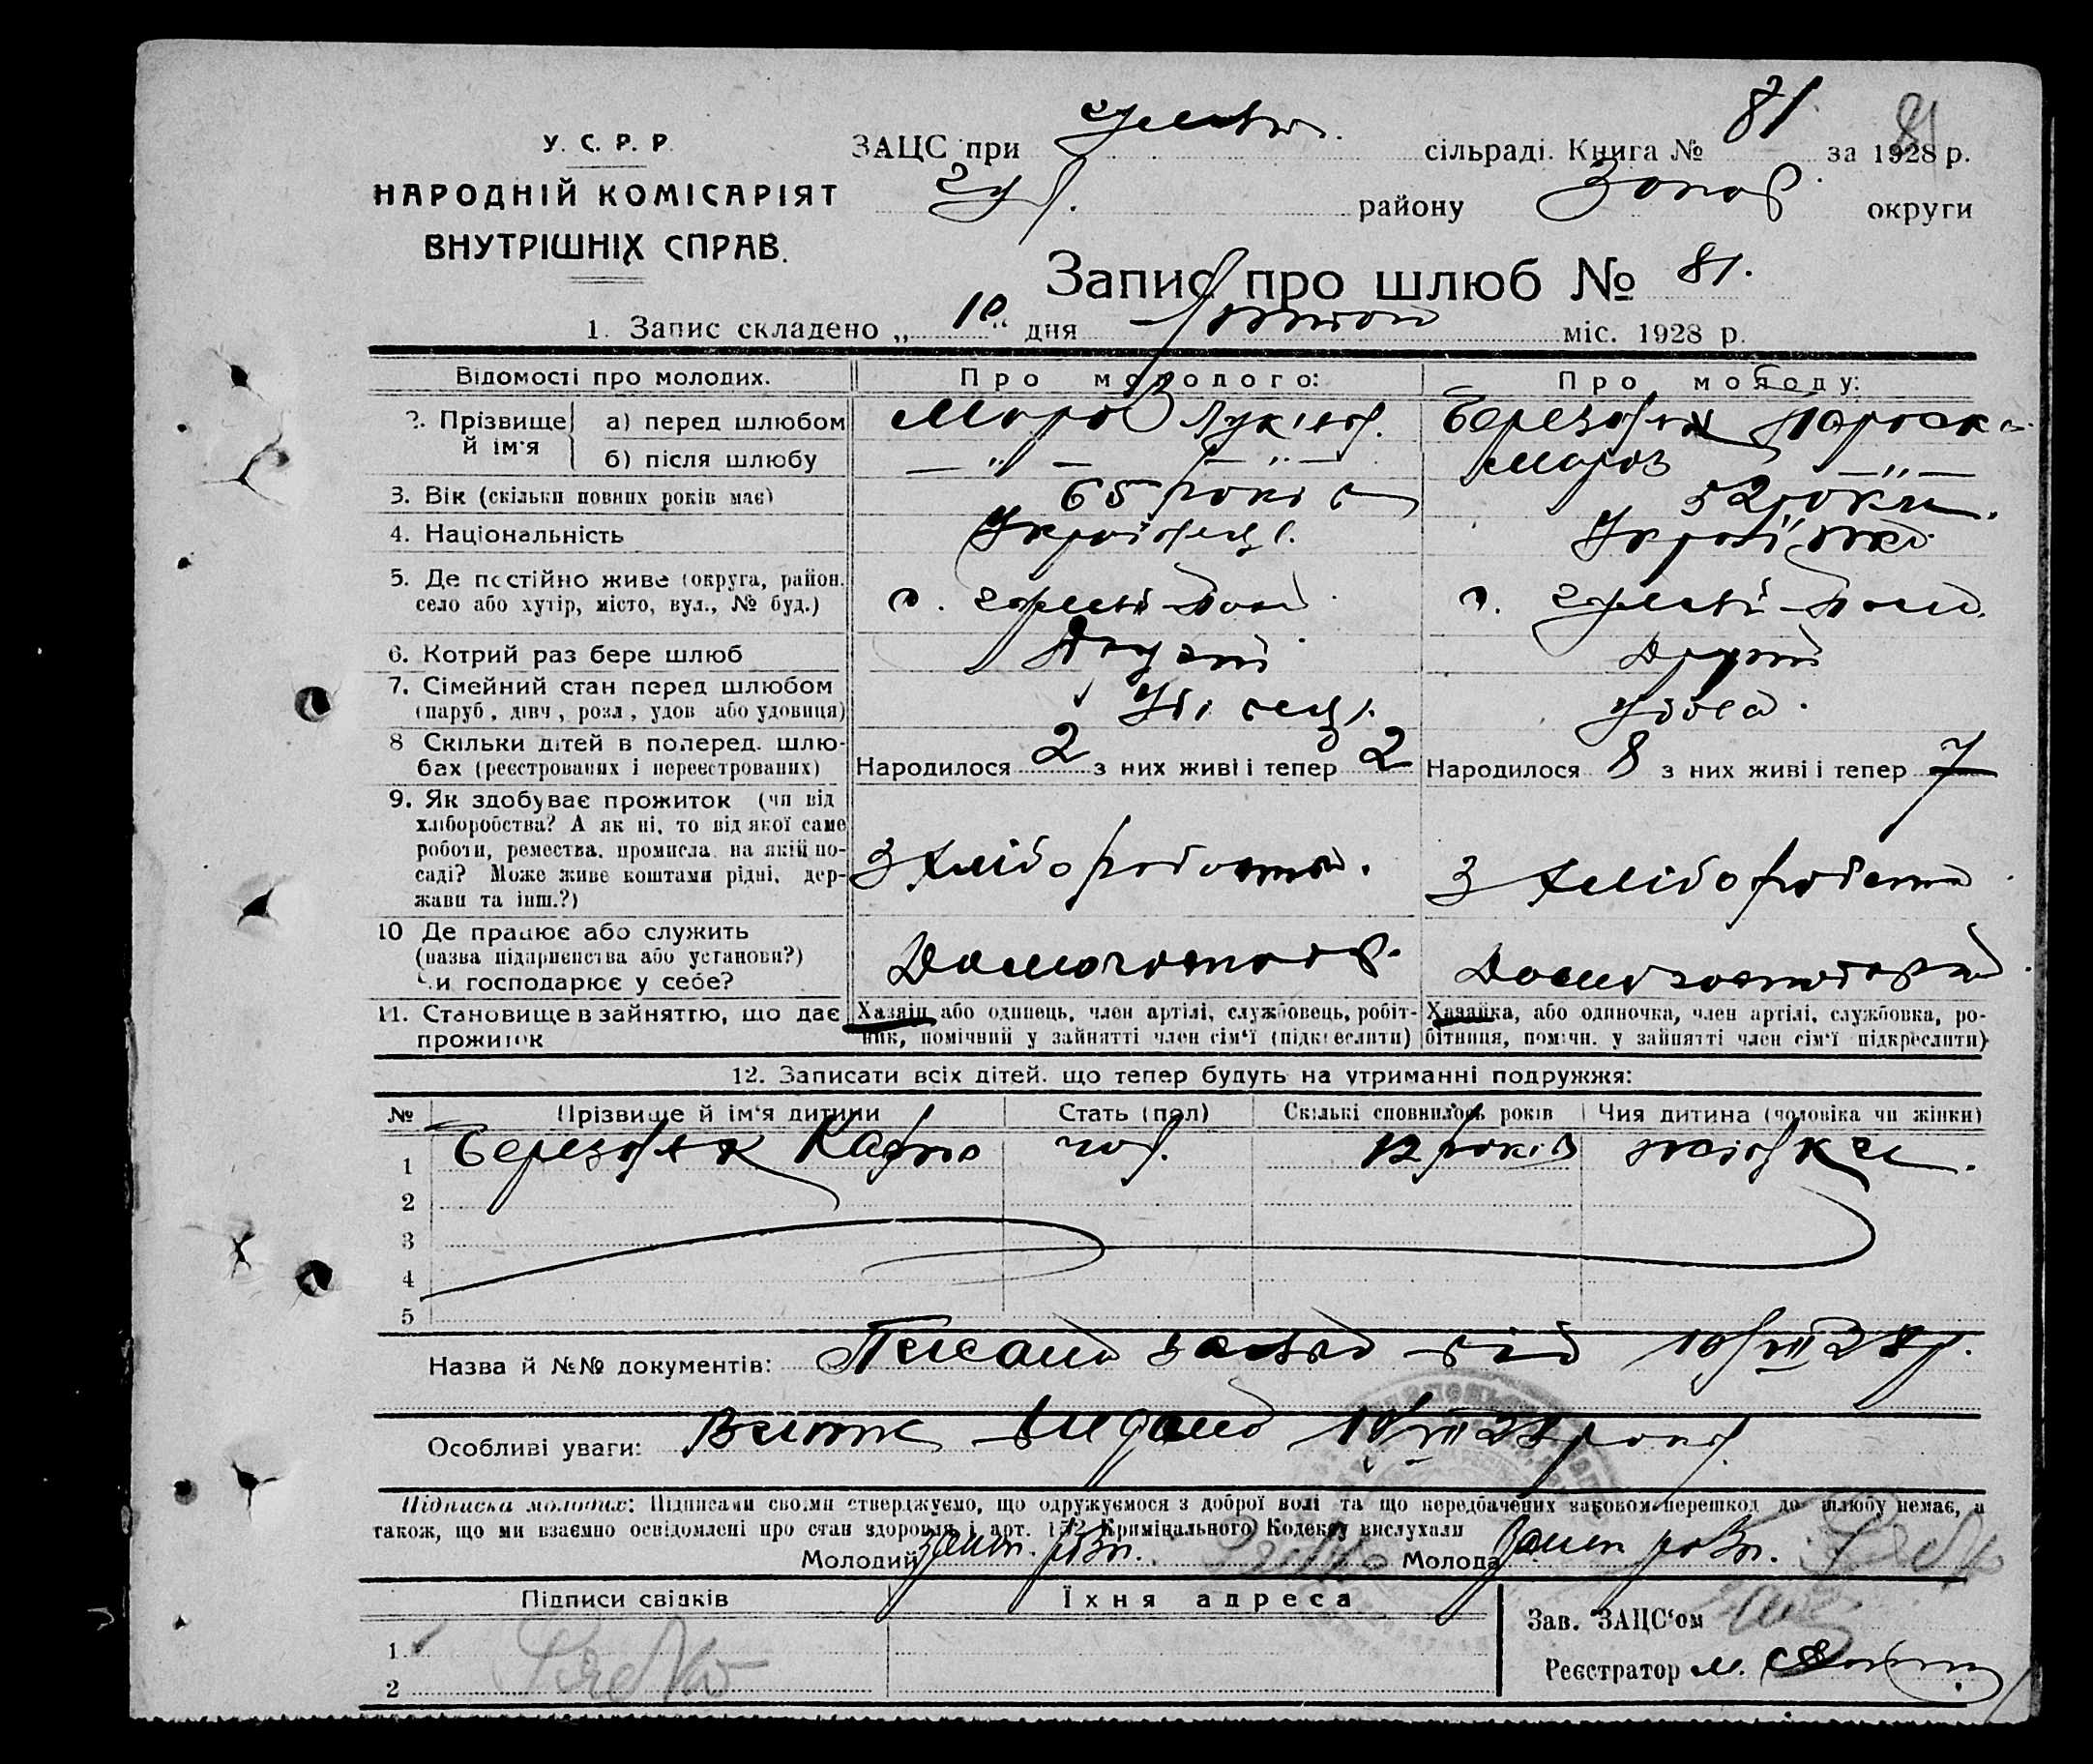 У. С. Р. Р.
НАРОДНІЙ КОМІСАРІЯТ
ВНУТРІШНІХ СПРАВ.
ЗАЦС при сільраді. Книга № 81 за 1928 р.
81
району Запор. округи
Запис про шлюб № 81.
1. Запис складено „10“ дня міс. 1928 р.
Відомості про молодих. Про молодого: Про молоду:
2. Прізвище й ім'я а) перед шлюбом Мороз Березняк Параск
б) після шлюбу — „ — — „ — Мороз — „ —
3. Вік (скільки повних років має) 65 років 52 роки.
4. Національність Українець. Українка
5. Де постійно живе (округа, район.
село або хутір, місто, вул., № буд.) с. с.
6. Котрий раз бере шлюб Другий Другий
7. Сімейний стан перед шлюбом
(паруб., дівч., розл., удов. або удовиця) Удова.
8 Скільки дітей в поперед. шлю-
бах (реєстрованих і нереєстрованих) Народилося 2 з них живі і тепер 2 Народилося 8 з них живі і тепер 7
9. Як здобуває прожиток (чи від
хліборобства? А як ні, то від якої саме
роботи, ремества, промисла, на якій по-
саді? Може живе коштами рідні, дер-
жави та інш.?) З хліборобства. З хліборобства
10 Де працює або служить
(назва підприємства або установи?)
Чи господарює у себе? Домогоспод. Домогосподарка
11. Становище в зайняттю, що дає
прожиток
Хазяїн або одинець, член артілі, службовець, робіт-
ник, помічний у зайнятті член сім'ї (підкреслити)
Хазяйка, або одиночка, член артілі, службовка, ро-
бітниця, помічн. у зайнятті член сім'ї підкреслити)
12. Записати всіх дітей, що тепер будуть на утриманні подружжя:
№ Прізвище й ім'я дитини Стать (пол) Скількі сповнилось років Чия дитина (чоловіка чи жінки)
1 Березняк чол. 12 років жінки.
2
3
4
5
Назва й №№ документів: заява від 10/VII 28 р.
Особливі уваги: Витяг видано 10/VII 28 року.
Підписка молодих: Підписами своїми стверджуємо, що одружуємося з доброї волі та що передбачених законом перешкод до шлюбу немає, а
також, що ми взаємно освідомлені про стан здоровля і арт. 152 Кримінального Кодексу вислухали
Молодий Молода
Підписи свідків Їхня адреса
Зав. ЗАЦС'ом
1
Реєстратор М.
2